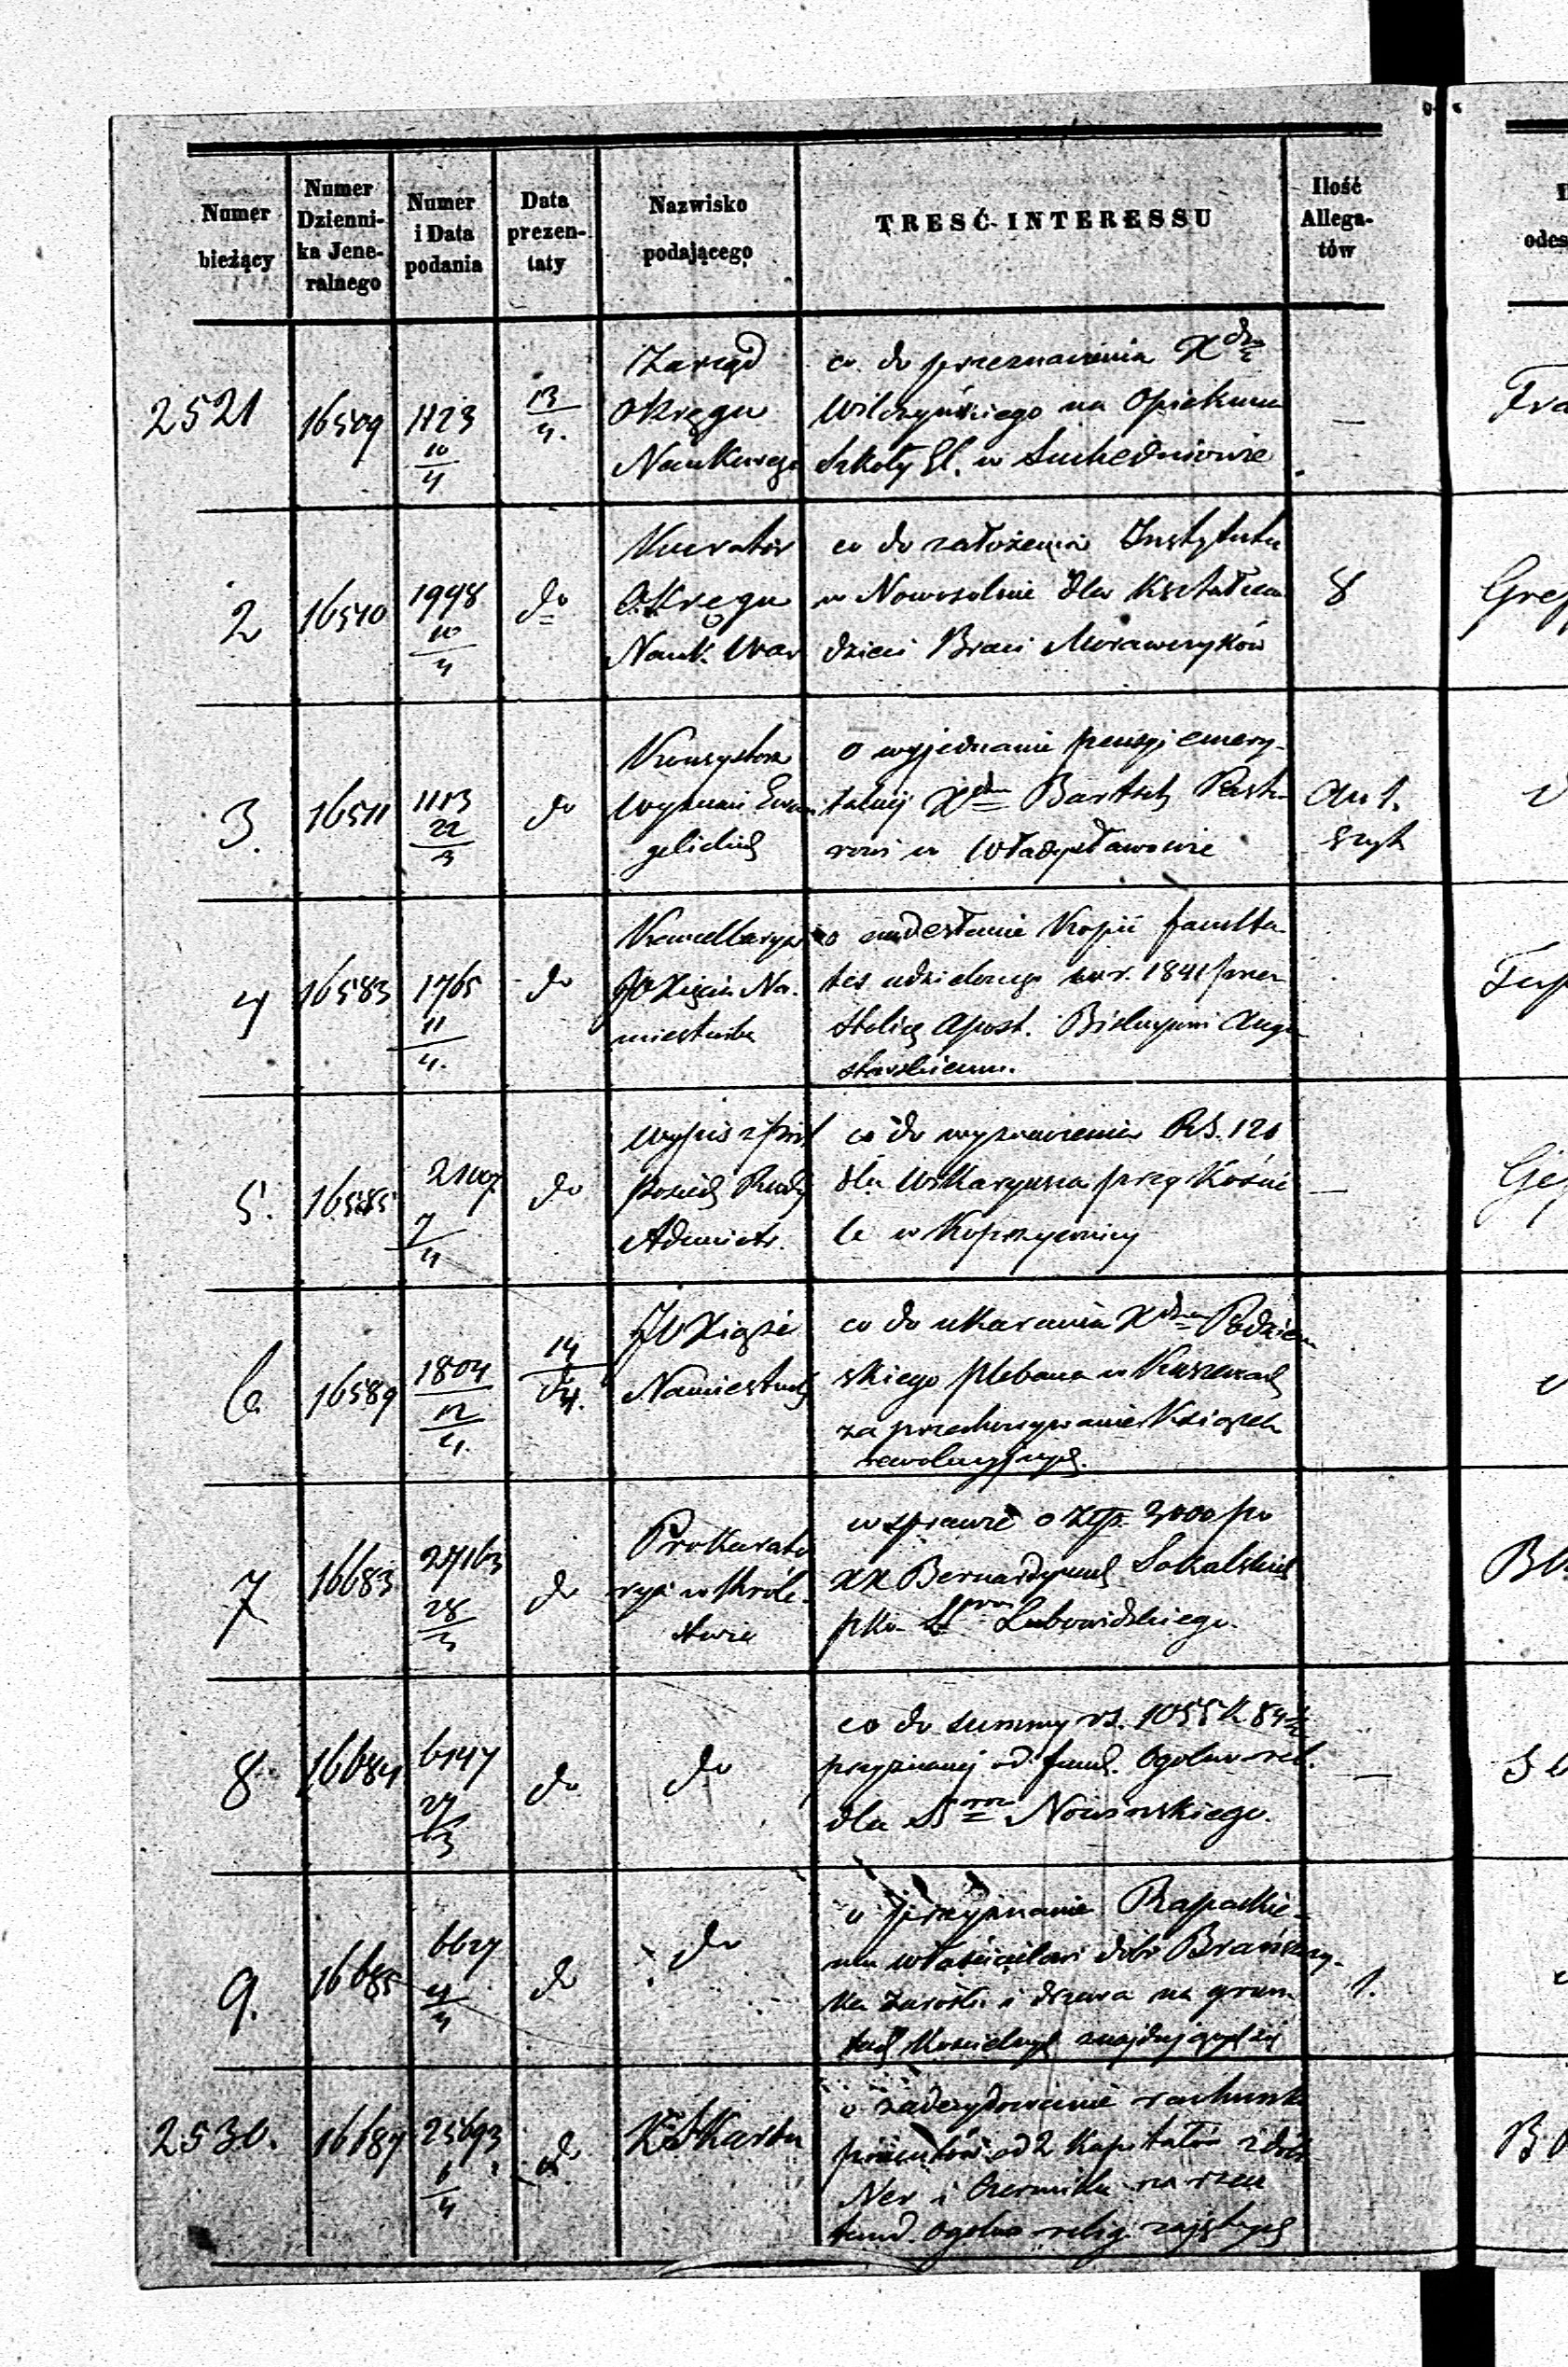 Numer bieżący
Numer Dzienni-ka Jene-ralnego
Numer i Data podania
Data prezen-taty
Nazwisko podającego
TREŚĆ INTERESSU
Ilość Allega-tów
2521
16509
1123
10/4
13/4.
Zarząd
Okręgu
Naukowego
co do przeznaczenia Xdza
Wilczyńskiego na Opiekuna
Szkoły El. w Suchedniowie
—
2
16510
1998
10/4
do
Kurator
Okręgu
Nauk. War
co do założenia Instytutu
w Nowosolnie dla Kształcen
dzieci Braci Morawczyków
8
3.
16511
1113
22/3
do
Konsystorz
Wyznań Ewan
gelickich
o wyjednanie pensyi emery-
talnej Xdzu Bartsch Pasto-
rowi w Władysławowie
4
16583
1765
11/4.
do
Kancellarya
JO Xięcia Na-
miestnika
o nadesłanie Kopii faculta-
tes udzielonego w r. 1841 przez
Stolicę Apost. Biskupowi Augu
stowskiemu.
5.
16585
2107
7/4
do
Wypis z Prot
posied. Rady
Administr.
co do wyznaczenia RS. 120
dla Wikaryusza przy Koście
le w Koprzywnicy
—
6.
16589
1804
12/4.
14/4.
JO Xiąże
Namiestnik
co do ukarania Xdza
skiego plebana w
za przechowywanie Książek
rewolucyjnych.
7
16683
27163
28/3
do
Prokurato
rya w Króle-
stwie
w sprawie o Złp. 3000 po
XX Bernardynach Sokalskich
pko Lubowidzkiego.
8
16684
6147
27/3
do
do
co do summy rs. 1055 k. 84
przyznanej od fund. Ogolno rel.
dla Nowowskiego.
—
9.
16685
6627
4/4
do
do
o przyznanie Rapackie-
mu właścicielowi dóbr Brańszczy-
ka zarośli i drzewa na grun
tach Kościelnych znajdujących się
1.
2530.
16687
25693
6/4
do
o zadecydowanie rachunku
procentów od 2 Kapitałów z dóbr
Ner i Czernika na rzecz
fund. ogolno relig. zajętych